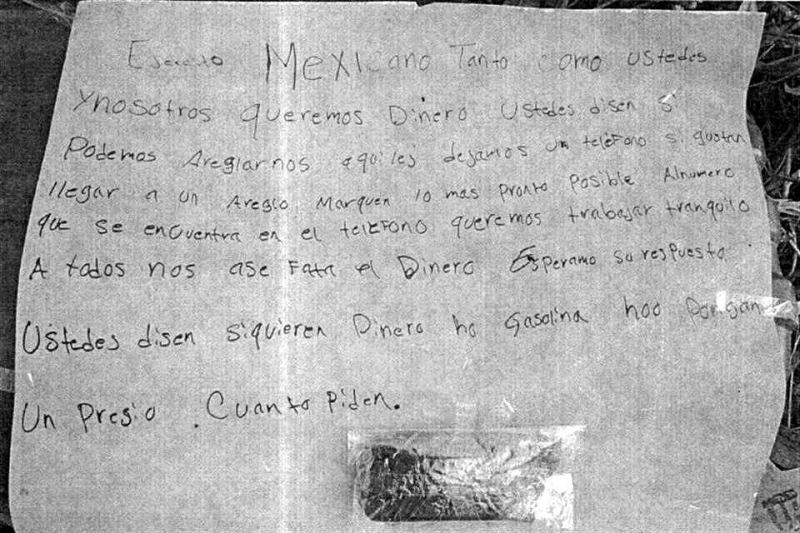 Ejercito Mexicano Tanto como ustedes
ynosotros queremos Dinero Ustedes disen si
Podemos Areglarnos aqui les dejamos un teléfono si gustan
llegar a un Areglo Marquen lo mas pronto posible Alnumero
que se encuentra en el telefono queremos trabajar tranquilo
A todos nos ase Fata el Dinero Esperamo su respuesta
Ustedes disen siquieren Dinero ho Gasolina hoo Pongan
Un Presio . Cuanto Piden.